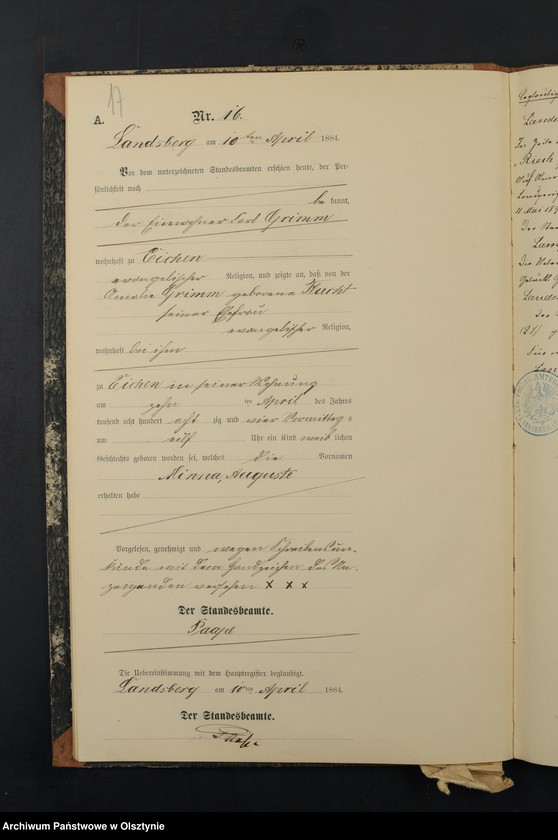 17
A.
Nr. 16.
Landsberg am 10ten April 1884.
Vor dem unterzeichneten Standesbeamten erschien heute, der Per-
sönlichkeit nach
be kannt,
der Einwohner Carl Grimm
wohnhaft zu Eichen
evangelischer Religion, und zeigte an, daß von der
Amalie Grimm geborene
seiner Ehefrau
evangelischer Religion,
wohnhaft bei ihm
zu Eichen in seiner Wohnung
am zehn ten April des Jahrs
tausend acht hundert acht zig und vier Vormittags
um elf Uhr ein Kind weib lichen
Geschlechts geboren worden sei, welches die Vornamen
Minna, Auguste
erhalten habe
Vorgelesen, genehmigt und wegen Schreibensun-
kunde mit dem Handzeichen des An-
zeigenden versehen x x x
Der Standesbeamte.
Paape
Die Uebereinstimmung mit dem Hauptregister beglaubigt.
Landsberg am 10ten April 1884.
Der Standesbeamte.
Paape
Archiwum Państwowe w Olsztynie